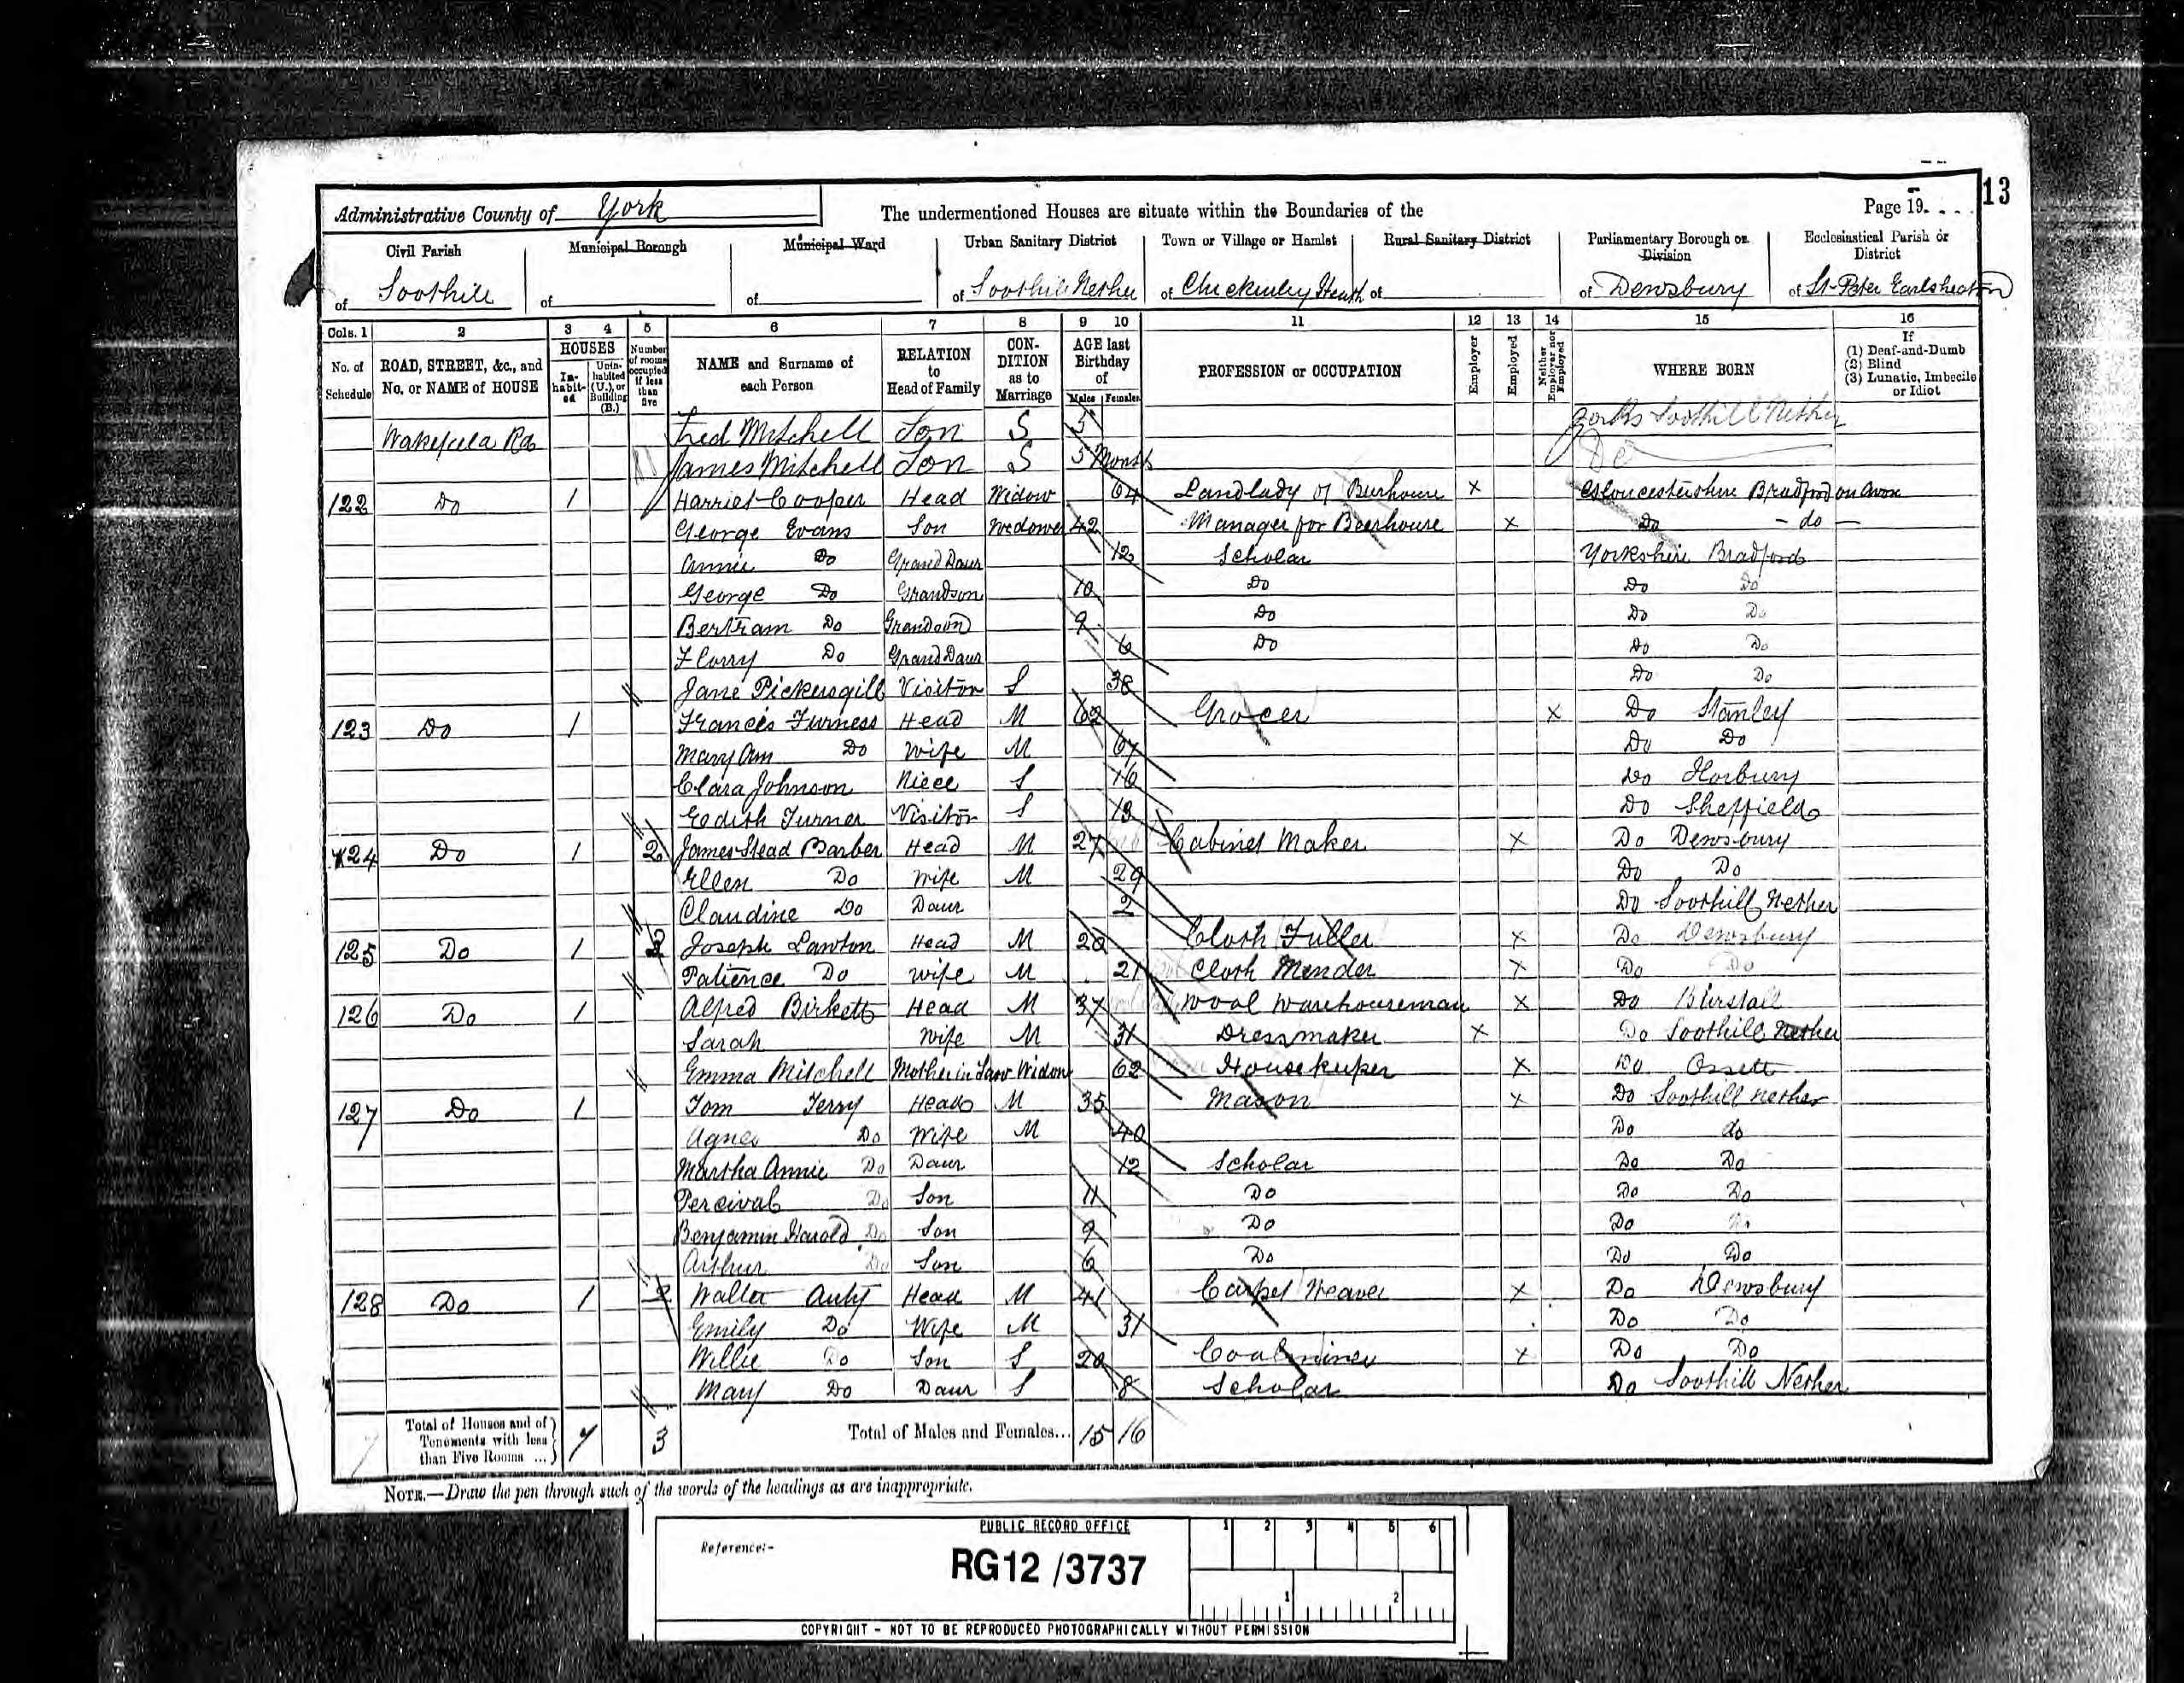 13
Administrative County of York The undermentioned Houses are situate within the Boundaries of the Page 19.
Civil Parish Municipal Borough Municipal Ward Urban Sanitary District Town or Village or Hamlet Rural Sanitary District Parliamentary Borough or Division Ecclesiastical Parish or District
of Soothill of of of Soothill Nether of Chickenley Heath of of Dewsbury of St Peter Earlsheaton
Cols. 1 2 3 4 5 6 7 8 9 10 11 12 13 14 15 16
No. of Schedule ROAD, STREET, &c., and No. or NAME of HOUSE HOUSES Inhabited Uninhabited (U.), or Building (B.) Number of rooms occupied if less than five NAME and Surname of each Person RELATION to Head of Family CONDITION as to Marriage AGE last Birthday of Males Females PROFESSION or OCCUPATION Employer Employed Neither Employer nor Employed WHERE BORN If (1) Deaf-and-Dumb (2) Blind (3) Lunatic, Imbecile or Idiot
Wakefield Rd Fred Mitchell Son S 5 Yorks Soothill Nether
James Mitchell Son S 5 Months Do
122 Do 1 Harriet Cooper Head Widow 64 Landlady of Beerhouse X Gloucestershire Bradford on Avon
George Evans Son Widower 42 Manager for Beerhouse X Do - do -
Annie Do Grand Daur 12 Scholar Yorkshire Bradford
George Do Grandson 10 Do Do Do
Bertram Do Grandson 9 Do Do Do
Florry Do Grand Daur 6 Do Do Do
Jane Pickersgill Visitor S 38 Do Do
123 Do 1 Francis Furness Head M 62 Grocer X Do Stanley
Mary Ann Do Wife M 67 Do Do
Clara Johnson Niece S 16 Do Horbury
Edith Turner Visitor S 13 Do Sheffield
124 Do 1 2 James Stead Barber Head M 27 Cabinet Maker X Do Dewsbury
Ellen Do Wife M 29 Do Do
Claudine Do Daur 2 Do Soothill Nether
125 Do 1 2 Joseph Lawton Head M 20 Cloth Fuller X Do Dewsbury
Patience Do Wife M 21 Cloth Mender X Do Do
126 Do 1 Alfred Birkett Head M 37 Wool Warehouseman X Do Birstall
Sarah Wife M 31 Dressmaker X Do Soothill Nether
Emma Mitchell Mother in Law Widow 62 Housekeeper X Do Ossett
127 Do 1 Tom Terry Head M 35 Mason X Do Soothill Nether
Agnes Do Wife M 40 Do do
Martha Annie Do Daur 12 Scholar Do Do
Percival Do Son 11 Do Do Do
Benjamin Harold Do Son 9 Do Do Do
Arthur Do Son 6 Do Do Do
128 Do 1 2 Walter Auty Head M 41 Carpet Weaver X Do Dewsbury
Emily Do Wife M 31 Do Do
Willie Do Son S 20 Coal miner X Do Do
Mary Do Daur S 8 Scholar Do Soothill Nether
Total of Houses and of Tenements with less than Five Rooms ... 7 3 Total of Males and Females... 15 16
NOTE.—Draw the pen through such of the words of the headings as are inappropriate.
PUBLIC RECORD OFFICE 1 2 3 4 5 6
Reference:-
RG12 /3737
1 2
COPYRIGHT - NOT TO BE REPRODUCED PHOTOGRAPHICALLY WITHOUT PERMISSION